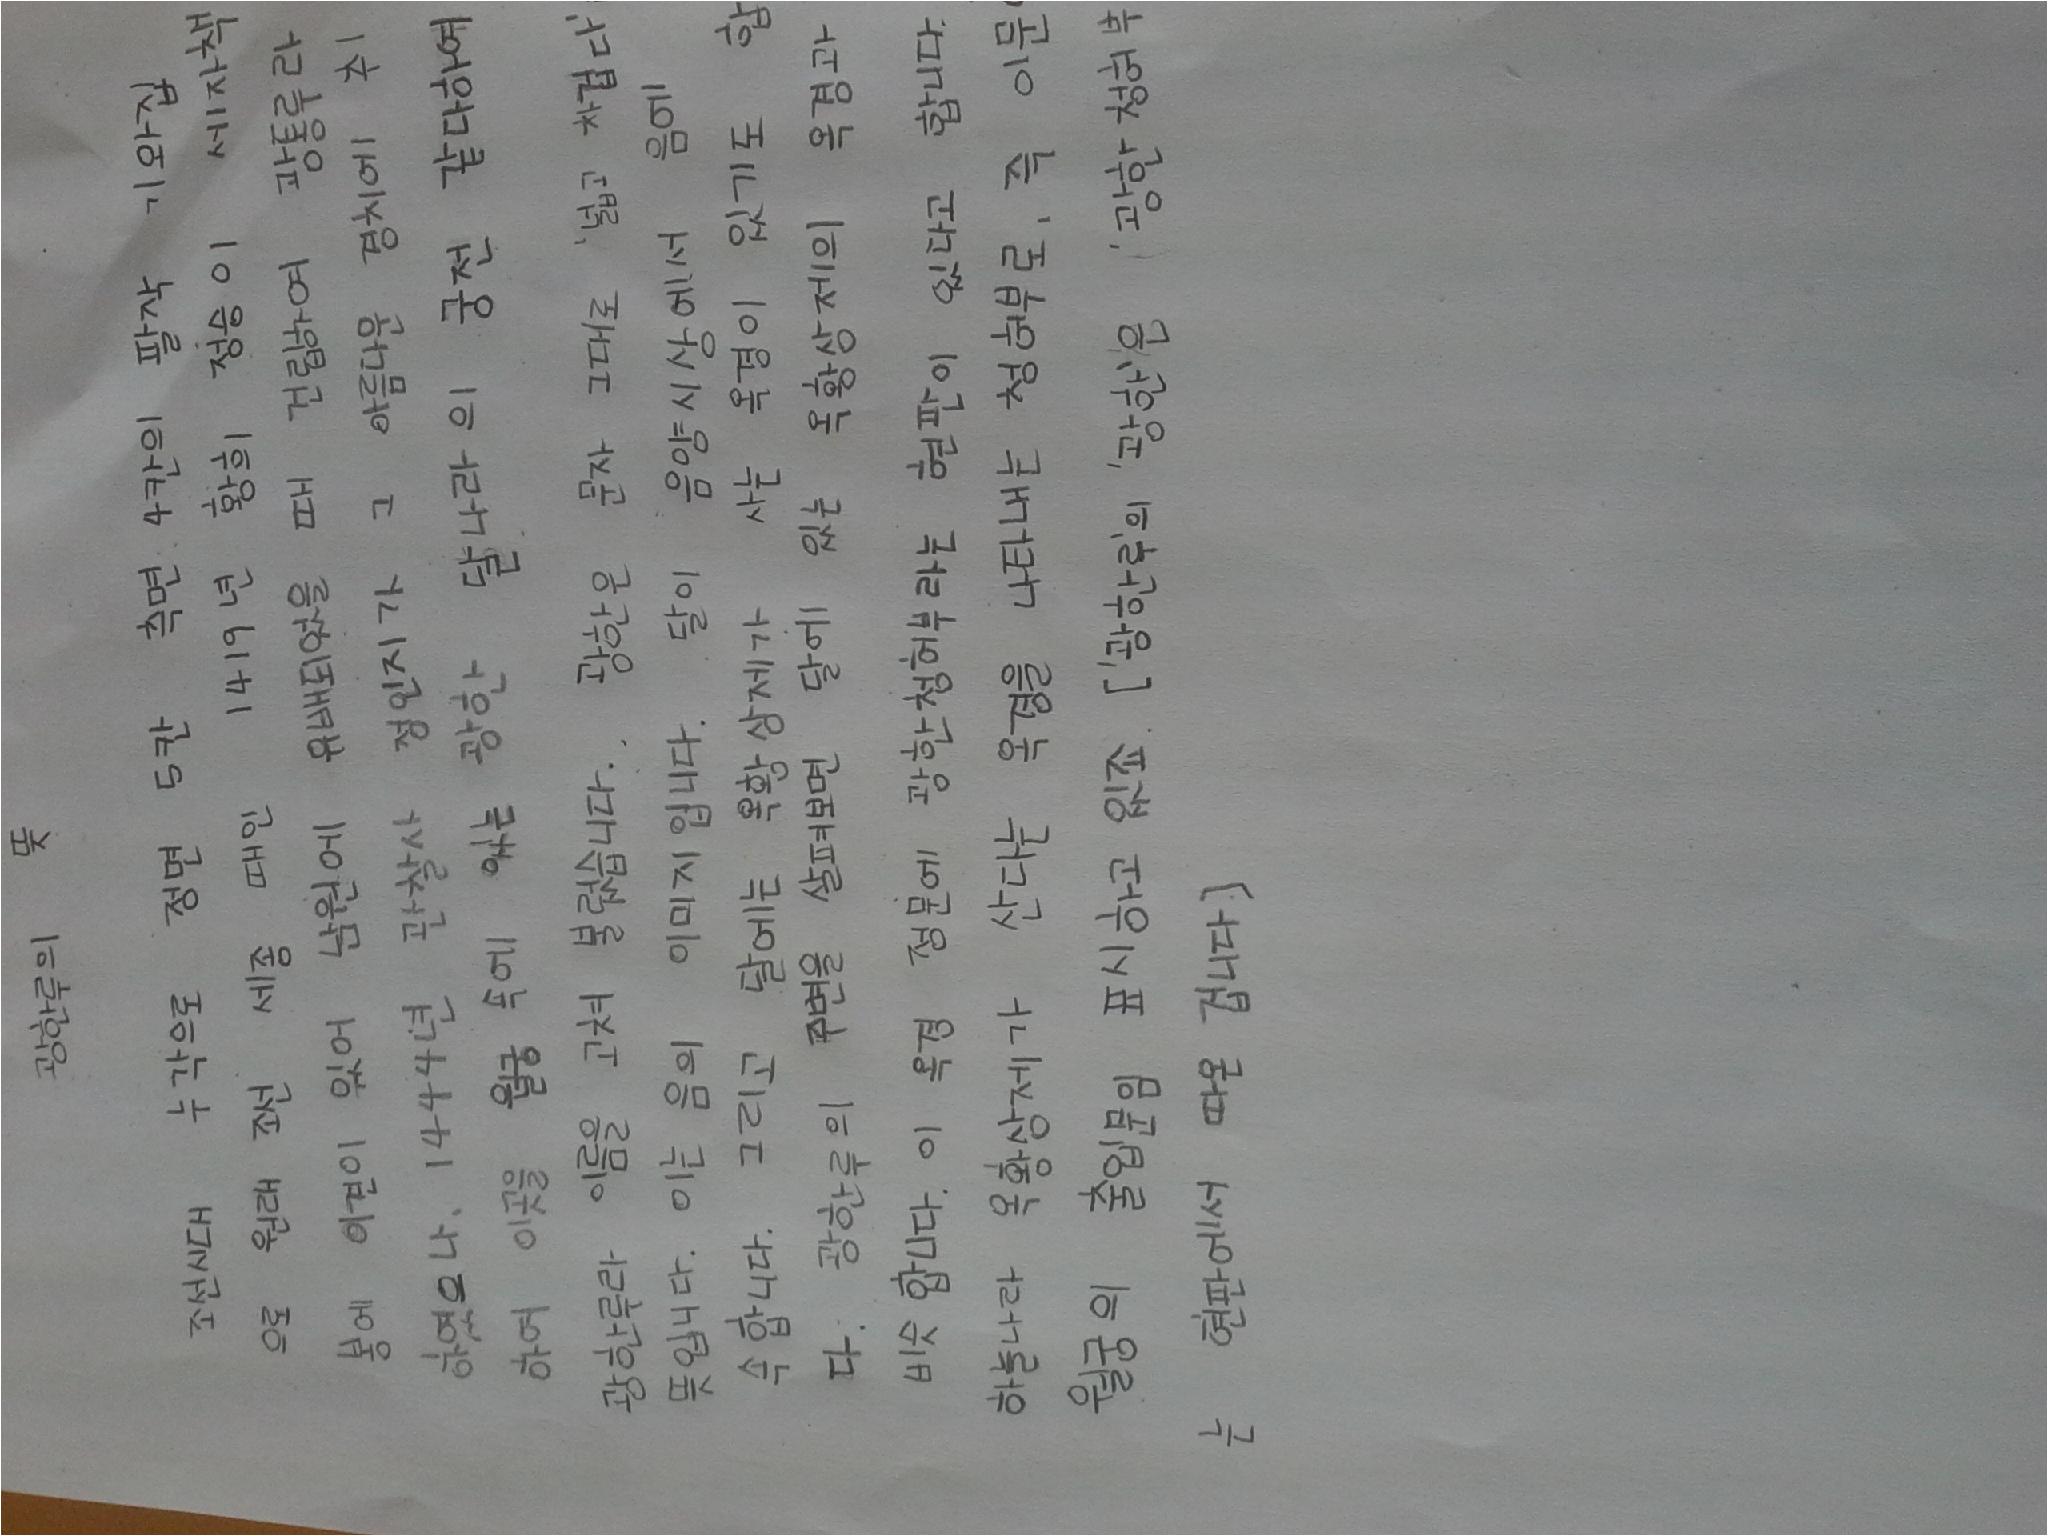 광한루의 뜻
조선시대 누각으로 정면 5칸 측면 4칸의 팔작 기와집
으로 원래 조선 세종 때인 1419년 황희 정승이 세자책
봉에 이견이 있어 남원에 유배되었을 때 건립하여 광통루라
하였으나, 1444년 관찰사 정인지가 그 아름다운 경치에 취
하여 이곳을 월궁 속에 있는 광한 달나라의 궁전 같다하여
광한루라 이름을 고쳐 불렀습니다. 광한은 문자 그대로 '넓고 차갑다'
뜻입니다. 이는 음의 이미지입니다. 달이 음양시상에서 음에
속합니다. 그리고 달에는 옥황상제가 사는 옥경이 있기도 합
다. 광한루의 주변을 살펴보면 달에 있는 옥황상제의 옥경과
비슷합니다. 이 옥경 정문에 광한청허부라는 현판이 있다고 합니다.
하늘나라 옥황상제가 산다는 옥경을 나타내는 청허부로, 즉 이문
월궁의 출입문임 표시하고 있죠. ['광한루'의 '광한'은 '광한 청허부
는 현판에서 따온 겁니다]